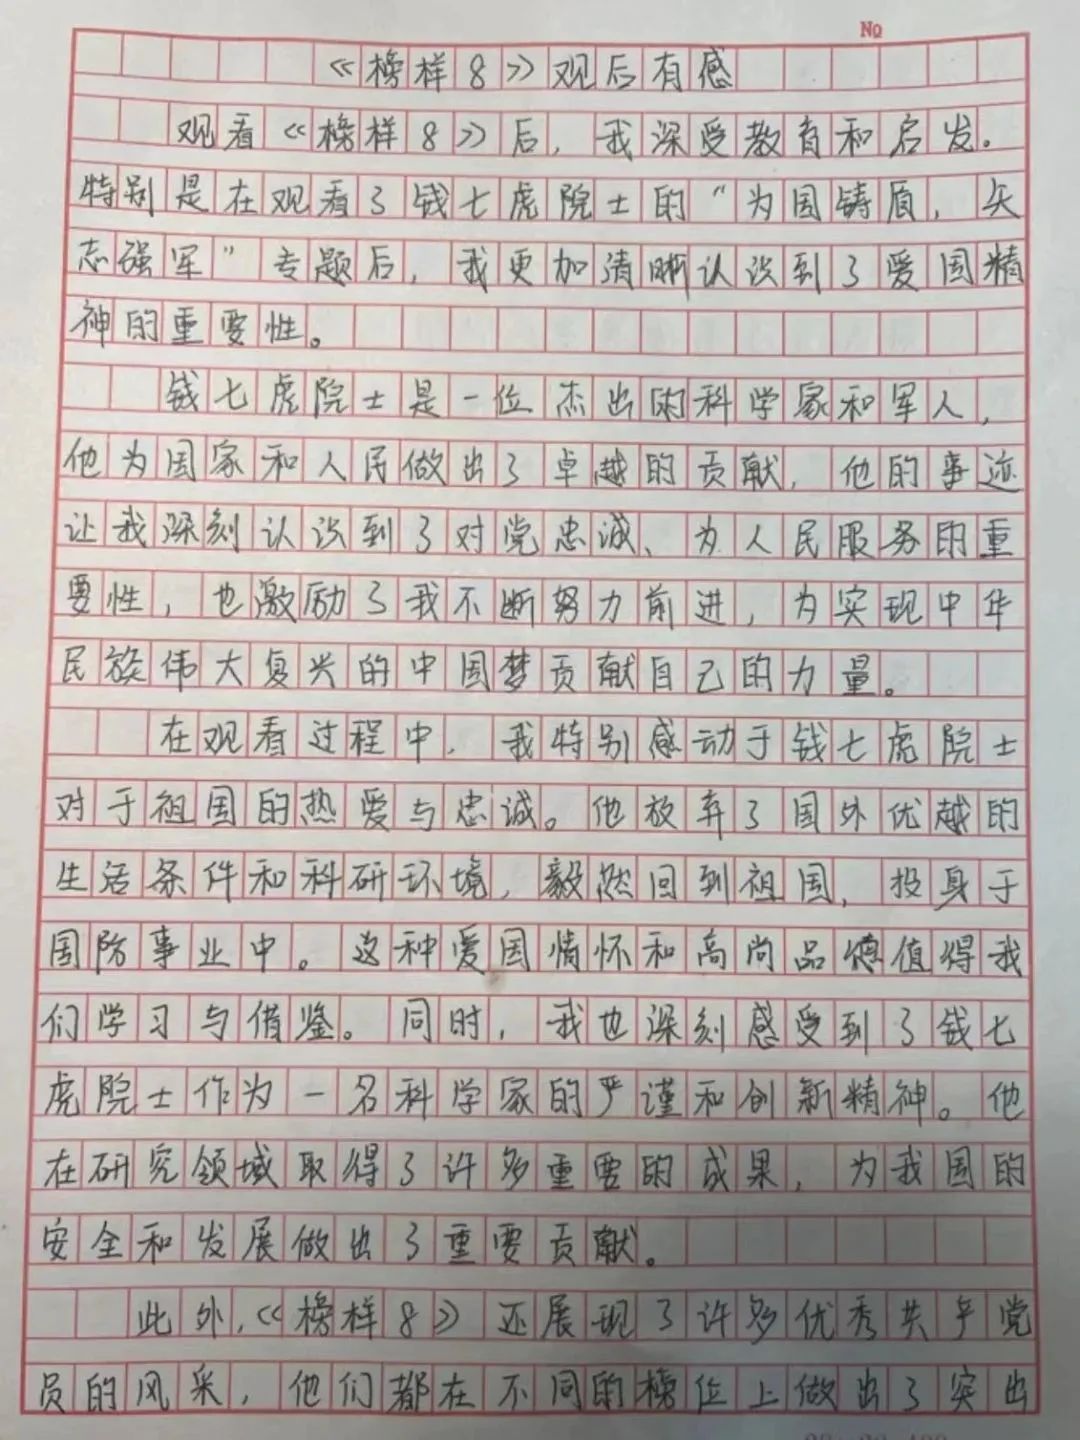 No
《榜样8》观后有感
观看《榜样8》后,我深受教育和启发。
特别是在观看了钱七虎院士的“为国铸盾,矢
志强军”专题后,我更加清晰认识到了爱国精
神的重要性。
钱七虎院士是一位杰出的科学家和军人,
他为国家和人民做出了卓越的贡献,他的事迹
让我深刻认识到了对党忠诚、为人民服务的重
要性,也激励了我不断努力前进,为实现中华
民族伟大复兴的中国梦贡献自己的力量。
在观看过程中,我特别感动于钱七虎院士
对于祖国的热爱与忠诚。他放弃了国外优越的
生活条件和科研环境,毅然回到祖国,投身于
国防事业中。这种爱国情怀和高尚品德值得我
们学习与借鉴。同时,我也深刻感受到了钱七
虎院士作为一名科学家的严谨和创新精神。他
在研究领域取得了许多重要的成果,为我国的
安全和发展做出了重要贡献。
此外,《榜样8》还展现了许多优秀共产党
员的风采,他们都在不同的榜位上做出了突出